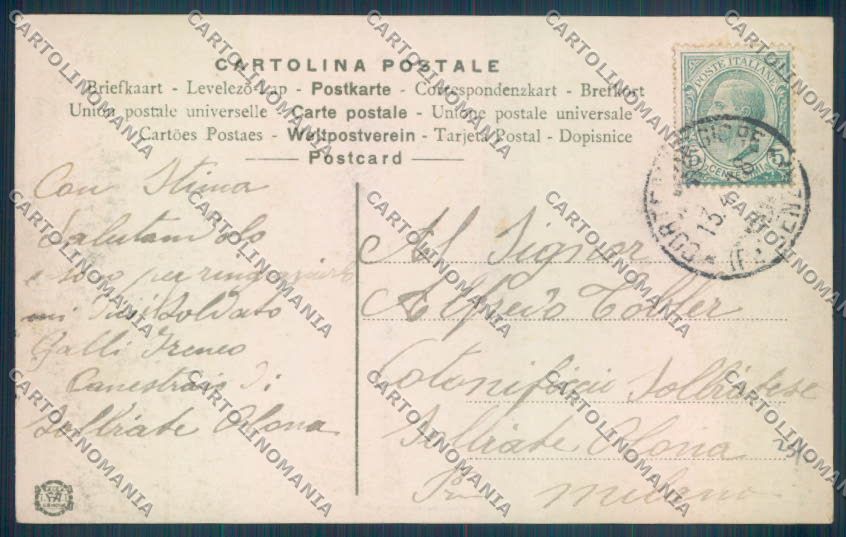 CARTOLINA POSTALE
Briefkaart - Levelező-Lap - Postkarte - Correspondenzkart - Brefkort
Union postale universelle - Carte postale - Unione postale universale
Cartões Postaes - Weltpostverein - Tarjeta Postal - Dopisnice
Postcard
POSTE ITALIANE
5 5
Con Stima
Salutandolo
e sono per
mi Soldato
Galli Ireneo
Canestrais di
Solbiate Olona
Al Signor
Alfredo Tobler
Cotonificio Solbiatese
Solbiate Olona
Milano
CARTOLINOMANIA